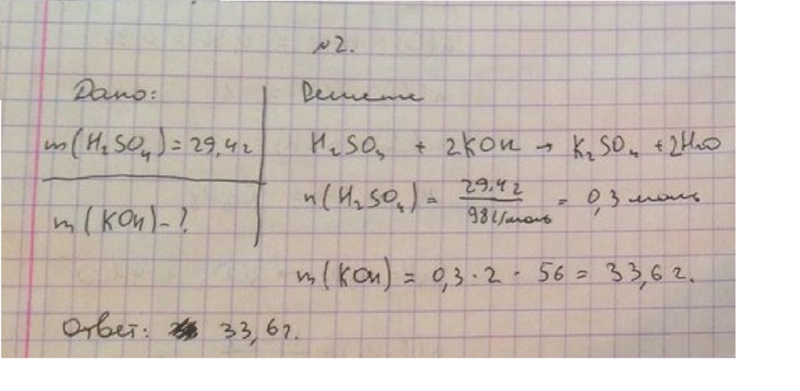 №2.
Дано:
m(H₂SO₄) = 29,4 г
m(KOH) - ?
Решение
H₂SO₄ + 2KOH → K₂SO₄ + 2H₂O
n(H₂SO₄) = 29,4 г / 98 г/моль = 0,3 моль
m(KOH) = 0,3 · 2 · 56 = 33,6 г.
Ответ: 33,6 г.